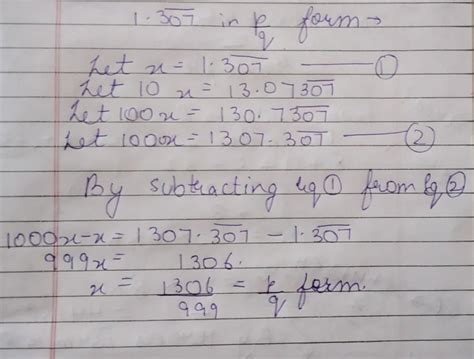 1.3͞0͞7 in p/q form →
Let x = 1.3͞0͞7 ——— ①
Let 10 x = 13.073͞0͞7
Let 100x = 130.73͞0͞7
Let 1000x = 1307.3͞0͞7 ——— ②
By subtracting eq ① from Eq ②
1000x-x = 1307.3͞0͞7 - 1.3͞0͞7
999x = 1306.
x = 1306/999 = p/q form.